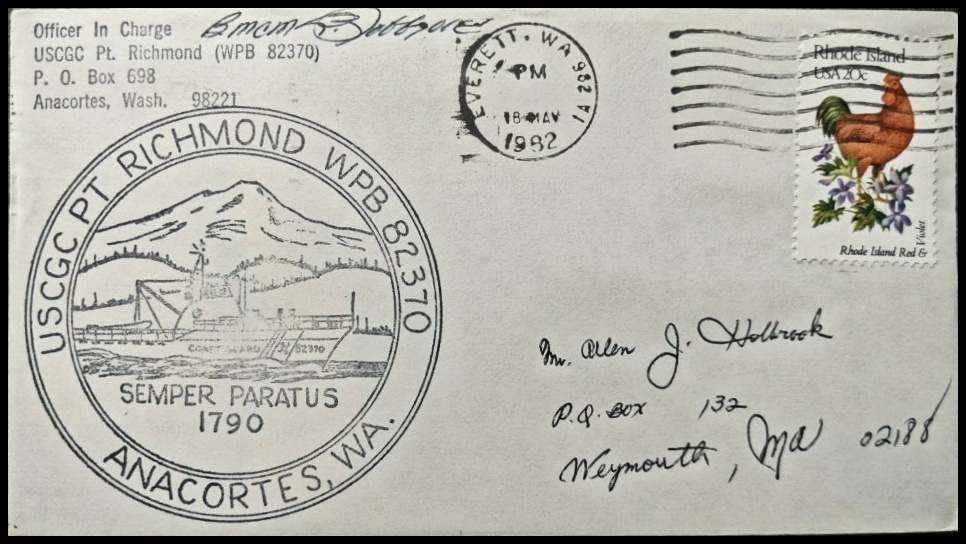 Officer In Charge
USCGC Pt. Richmond (WPB 82370)
P. O. Box 698
Anacortes, Wash. 98221
EVERETT, WA 982
PM
18 MAY
1982
Rhode Island
USA 20c
Rhode Island Red & Violet
USCGC PT RICHMOND WPB 82370
COAST GUARD 82370
SEMPER PARATUS
1790
ANACORTES, WA.
Mr. Allen J. Holbrook
P.O. BOX 132
Weymouth, Ma 02188